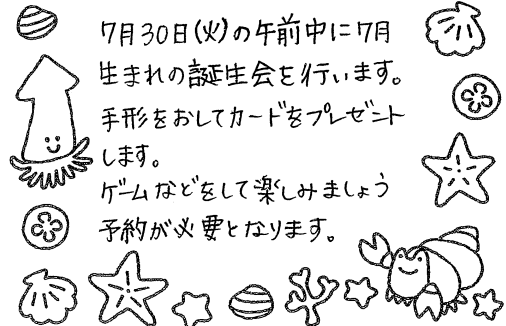 7月30日(火)の午前中に7月
生まれの誕生会を行います。
手形をおしてカードをプレゼント
します。
ゲームなどをして楽しみましょう
予約が必要となります。